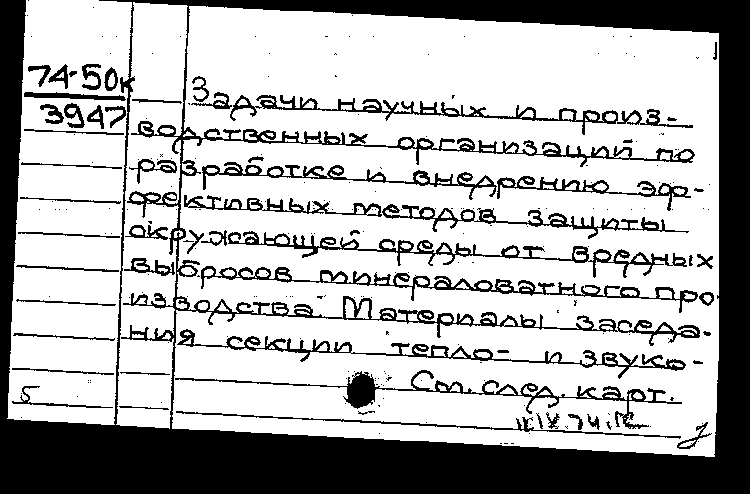 74-50к
3947
Задачи научных и произ-
водственных организаций по
разработке и внедрению эф-
фективных методов защиты
окружающей среды от вредных
выбросов минераловатного про
изводства. Материалы заседа-
ния секции тепло- и звуко-
См. след. карт.
5